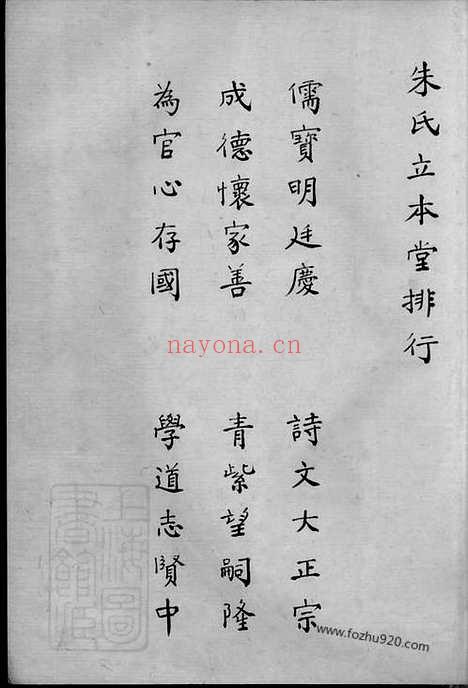 朱氏立本堂排行
儒寶明廷慶　詩文大正宗
成德懷家善　青紫望嗣隆
為官心存國　學道志賢中
nayona.cn
上海圖書館藏
www.fozhu920.com